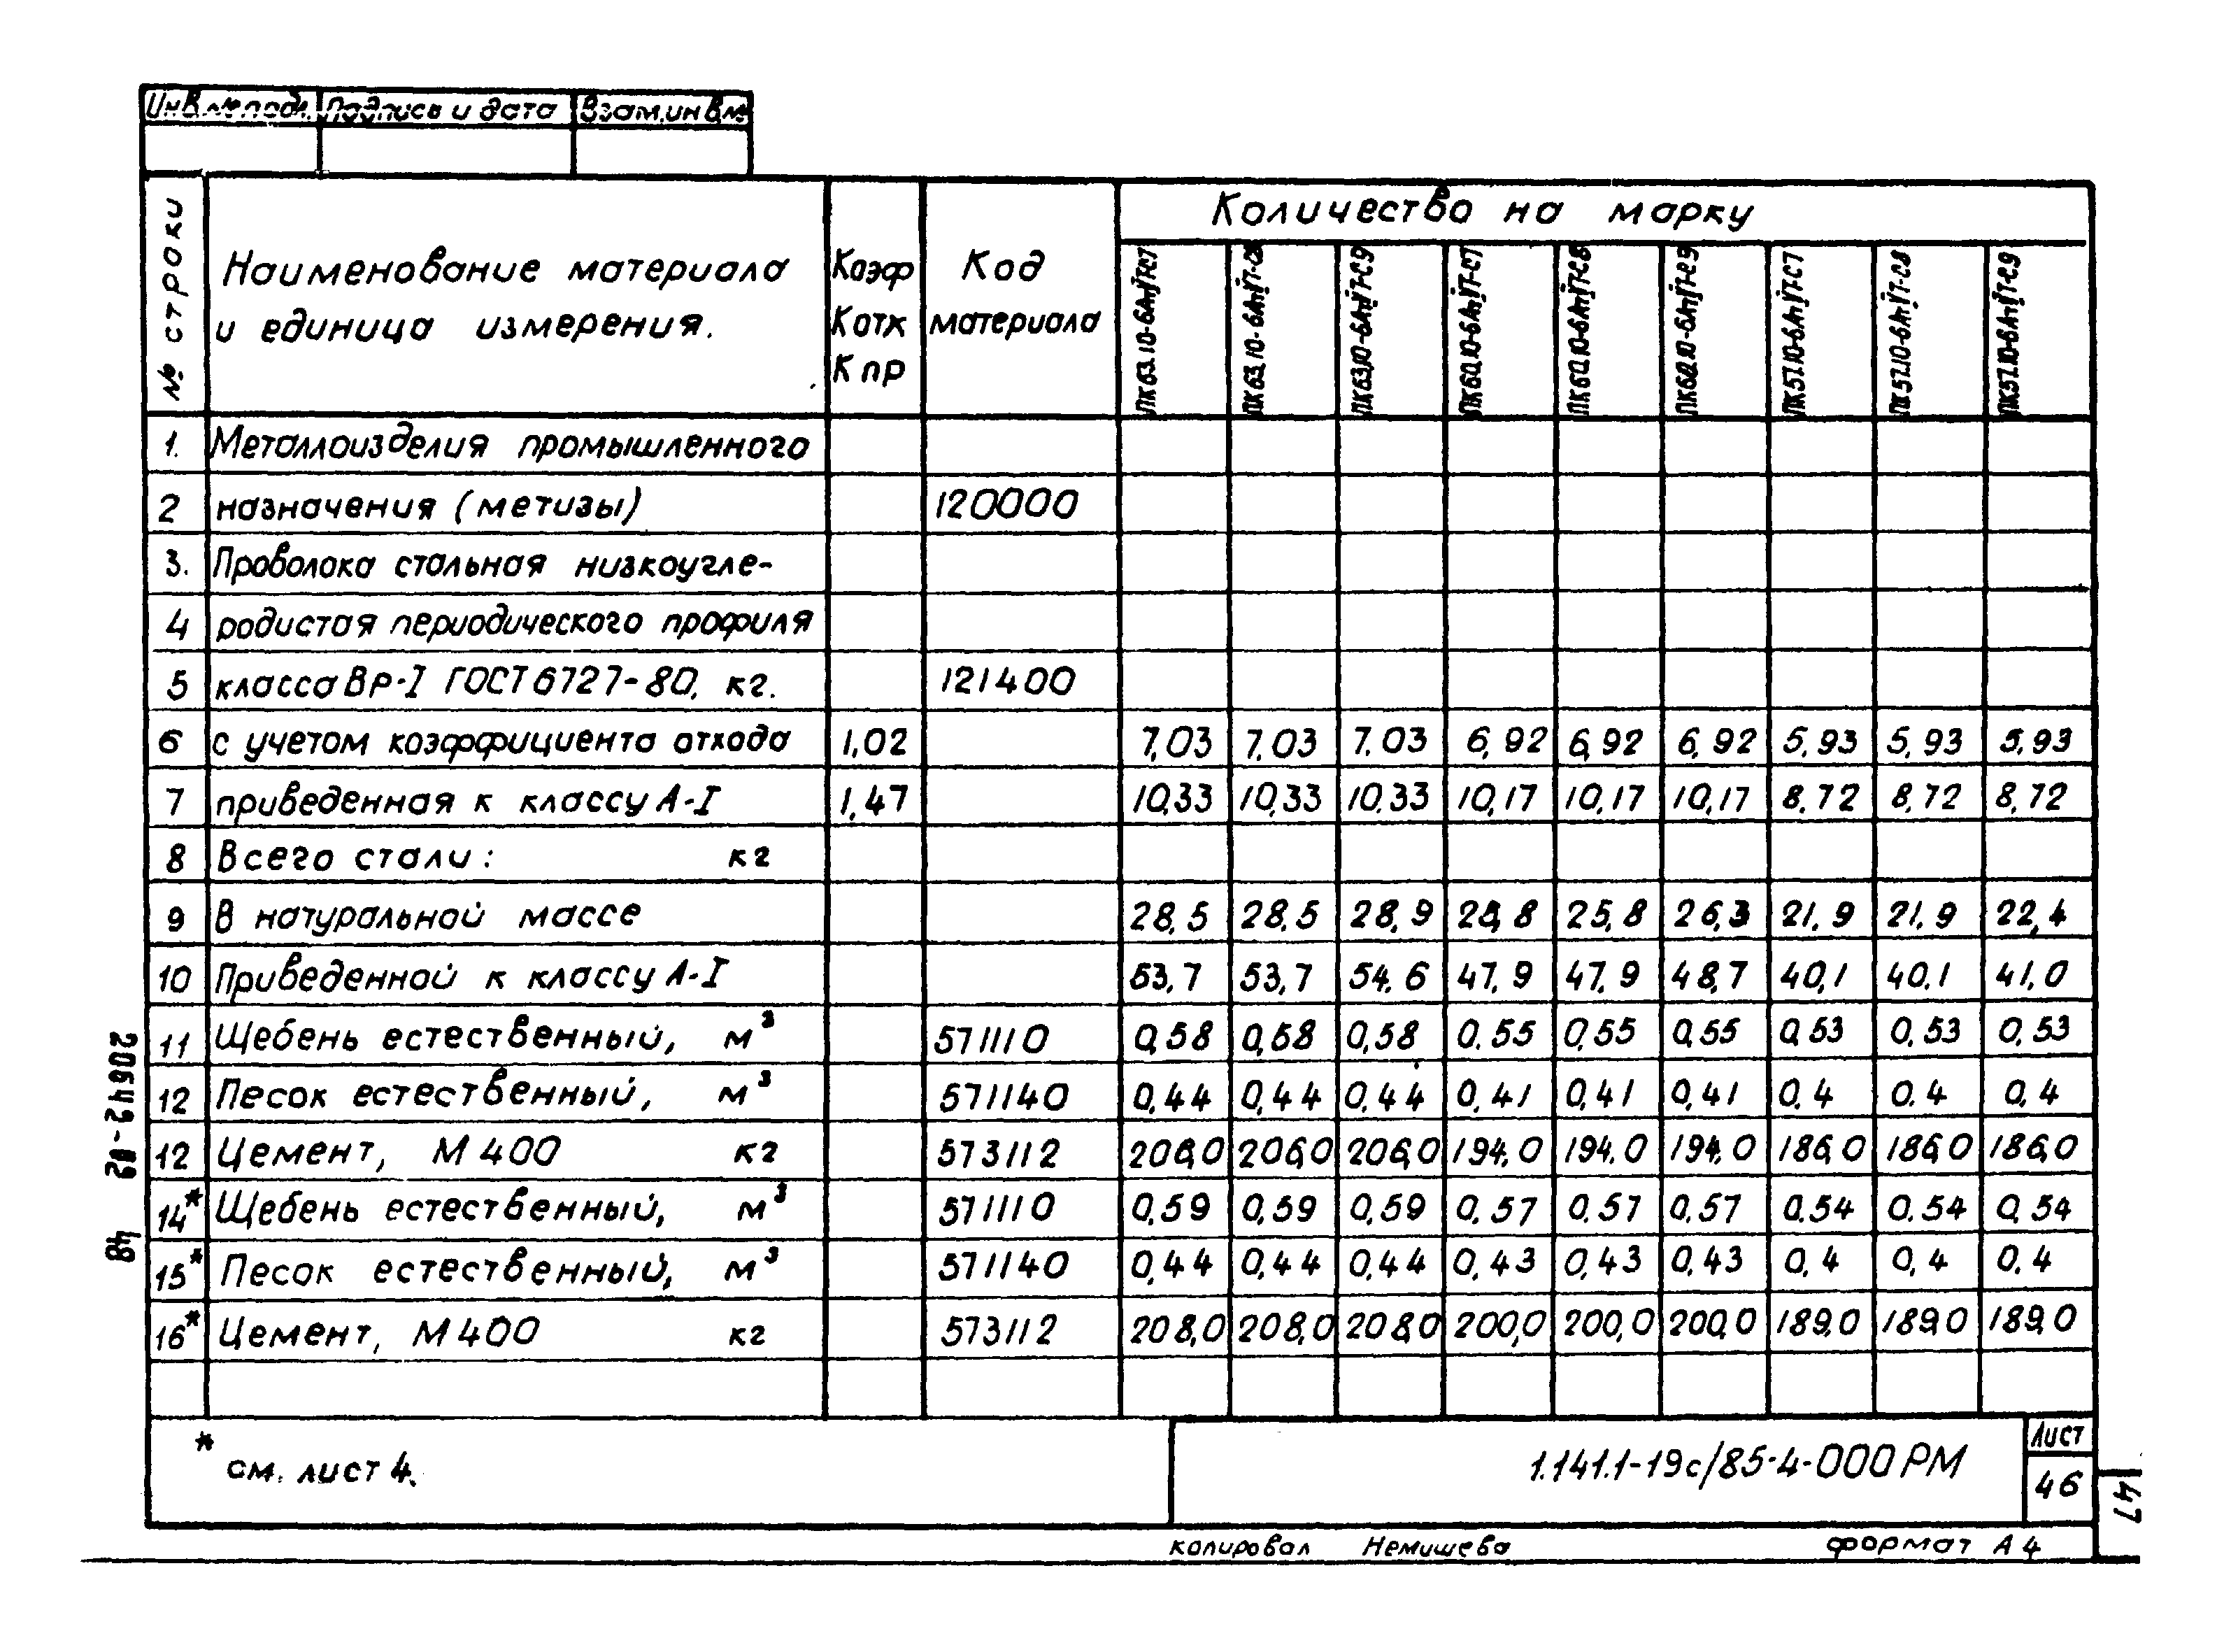 Инв.№ подл. Подпись и дата Взам.инв.№
№ строки
Наименование материала
и единица измерения.
Коэф
Котх
К пр
Код
материала
Количество на марку
ПК63.10-6АтV̄Т-С7 ПК63.10-6АтV̄Т-С8 ПК63.10-6АтV̄Т-С9 ПК60.10-6АтV̄Т-С7 ПК60.10-6АтV̄Т-С8 ПК60.10-6АтV̄Т-С9 ПК57.10-6АтV̄Т-С7 ПК57.10-6АтV̄Т-С8 ПК57.10-6АтV̄Т-С9
1. Металлоизделия промышленного
2 назначения (метизы) 120000
3. Проволока стальная низкоугле-
4 родистая периодического профиля
5 класса Вр-I ГОСТ 6727-80, кг. 121400
6 с учетом коэффициента отхода 1,02 7,03 7,03 7,03 6,92 6,92 6,92 5,93 5,93 5,93
7 приведенная к классу А-I 1,47 10,33 10,33 10,33 10,17 10,17 10,17 8,72 8,72 8,72
8 Всего стали: кг
9 В натуральной массе 28,5 28,5 28,9 25,8 25,8 26,3 21,9 21,9 22,4
10 Приведенной к классу А-I 53,7 53,7 54,6 47,9 47,9 48,7 40,1 40,1 41,0
11 Щебень естественный, м³ 571110 0,58 0,58 0,58 0.55 0,55 0,55 0,53 0,53 0,53
12 Песок естественный, м³ 571140 0,44 0,44 0,44 0,41 0,41 0,41 0,4 0.4 0,4
12 Цемент, М400 кг 573112 206,0 206,0 206,0 194,0 194,0 194,0 186,0 186,0 186,0
14* Щебень естественный, м³ 571110 0,59 0,59 0,59 0,57 0,57 0,57 0.54 0.54 0,54
15* Песок естественный, м³ 571140 0,44 0,44 0,44 0,43 0,43 0,43 0,4 0,4 0,4
16* Цемент, М400 кг 573112 208,0 208,0 208,0 200,0 200,0 200,0 189,0 189,0 189,0
* см. лист 4.
1.141.1-19с/85-4-000 РМ
Лист
46
копировал Немишева формат А4
20642-02 48
47